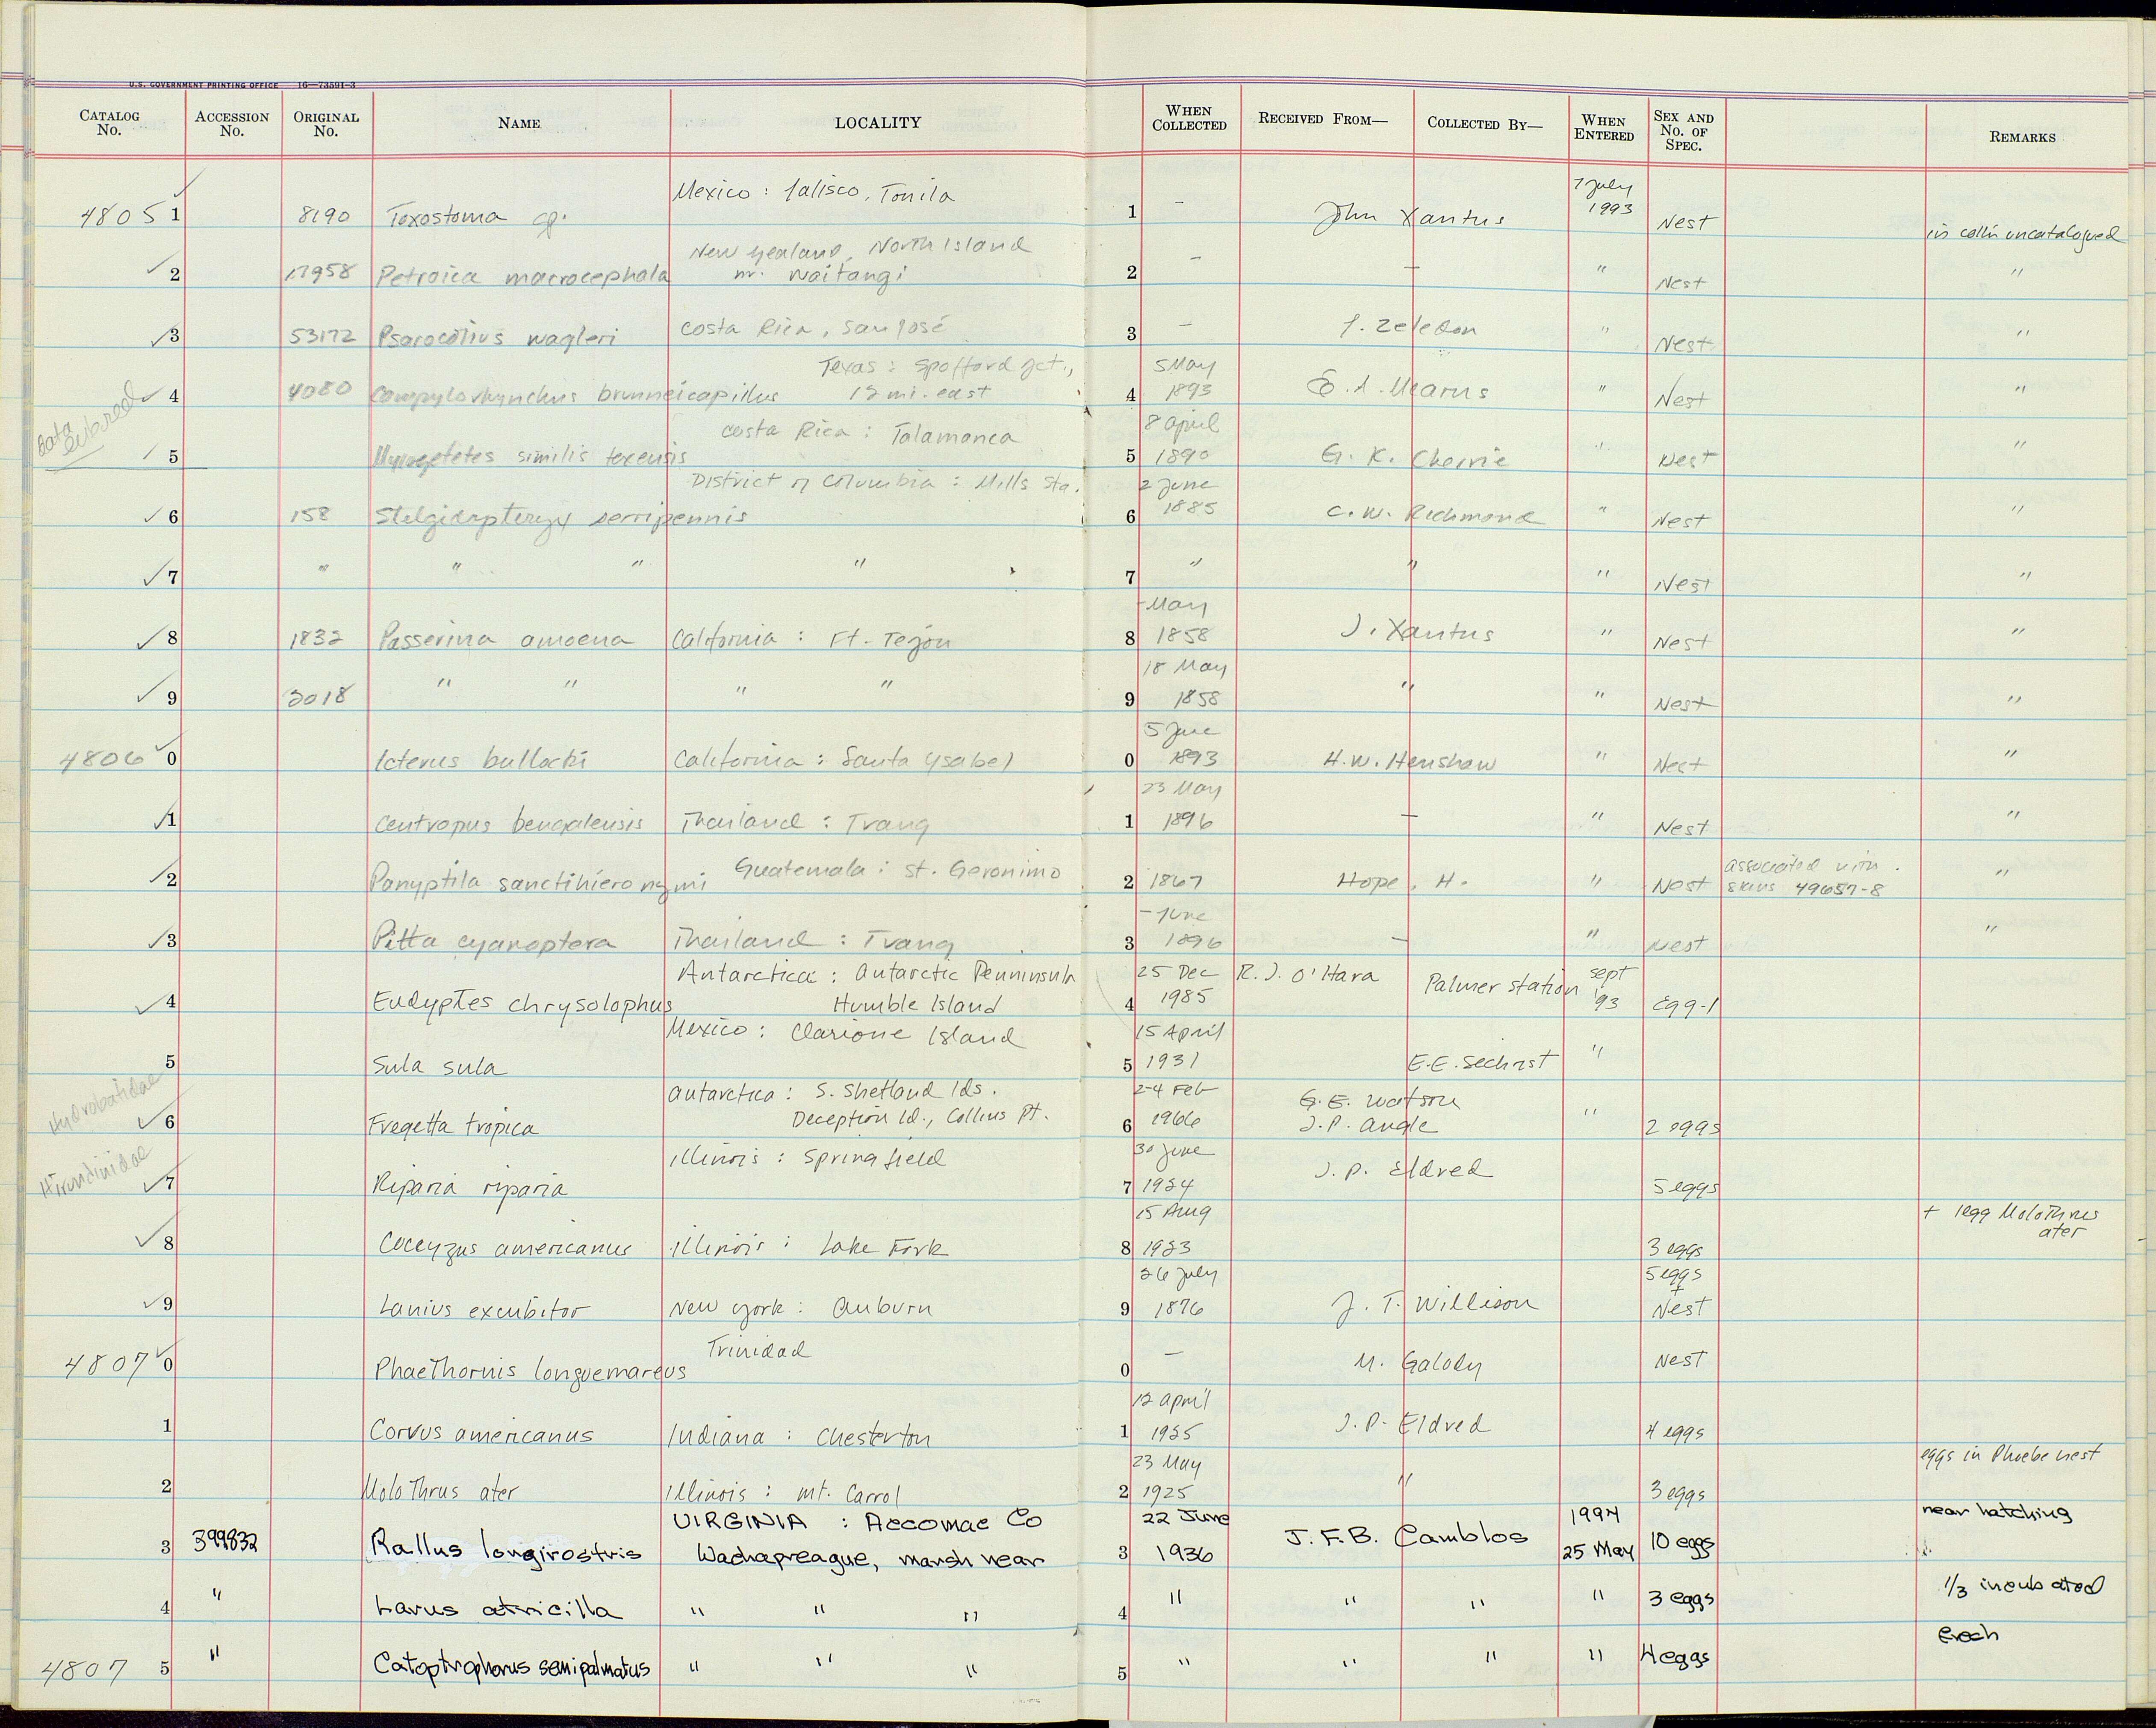 U.S. GOVERNMENT PRINTING OFFICE 16—73591-3
CATALOG No. ACCESSION No. ORIGINAL No. NAME LOCALITY WHEN COLLECTED RECEIVED FROM— COLLECTED BY— WHEN ENTERED SEX AND No. OF SPEC. REMARKS
Mexico: Jalisco, Tonila 7 July
4805 1 8190 Toxostoma sp. 1 — John Xantus 1993 Nest in coll'n uncatalogued
New Zealand, North Island
2 17958 Petroica macrocephala nr. Waitangi 2 — — " Nest "
3 53172 Psarocolius wagleri Costa Rica, San José 3 — J. Zeledon " Nest "
Texas: Spofford Jct., 5 May
4 4080 Campylorhynchus brunneicapillus 12 mi. east 4 1893 E. A. Mearns " Nest "
Data entered
Costa Rica: Talamanca 8 April
5 similis texensis 5 1890 G. K. Cherrie " Nest "
District of Columbia: Mills Sta. 2 June
6 158 Stelgidopteryx serripennis 6 1885 C. W. Richmond " Nest "
7 " " " " 7 " " " Nest "
- May
8 1832 Passerina amoena California: Ft. Tejon 8 1858 J. Xantus " Nest "
18 May
9 2018 " " " " 9 1858 " " Nest "
5 June
4806 0 Icterus bullocki California: Santa Ysabel 0 1893 H.W. Henshaw " Nest "
23 May
1 Centropus bengalensis Thailand: Trang 1 1896 — " Nest "
Guatemala: St. Geronimo associated with
2 Panyptila sanctihieronymi 2 1867 Hope, H. " Nest skins 49657-8 "
- June
3 Pitta cyanoptera Thailand: Trang 3 1896 — " Nest "
Antarctica: Antarctic Penninsula 25 Dec R. J. O'Hara Palmer Station Sept
4 Eudyptes chrysolophus Humble Island 4 1985 '93 Egg-1
Mexico: Clarione Island 15 April
5 Sula sula 5 1931 E.E. Sechrist "
Hydrobatidae
Antarctica: S. Shetland Ids. 2-4 Feb G. E. Watson
6 Fregetta tropica Deception Id., Collins Pt. 6 1966 J.P. Angle " 2 eggs
Hirundinidae
Illinois: Springfield 30 June J. P. Eldred
7 Riparia riparia 7 1924 5 eggs
15 Aug + 1 egg Molothrus
8 Coccyzus americanus Illinois: Lake Fork 8 1923 3 eggs ater
26 July 5 eggs +
9 Lanius excubitor New York: Auburn 9 1876 J. T. Willison Nest
Trinidad
4807 0 Phaethornis longuemareus 0 — M. Galody Nest
12 April
1 Corvus americanus Indiana: Chesterton 1 1925 J. P. Eldred 4 eggs
23 May eggs in Phoebe nest
2 Molothrus ater Illinois: Mt. Carrol 2 1925 " 3 eggs
VIRGINIA: Accomac Co 22 June 1994 near hatching
3 399832 Rallus longirostris Wachapreague, marsh near 3 1936 J. F.B. Camblos 25 May 10 eggs
4 " Larus atricilla " " " 4 " " " " 3 eggs 1/3 incubated
4807 5 " Catoptrophorus semipalmatus " " " 5 " " " " 4 eggs fresh